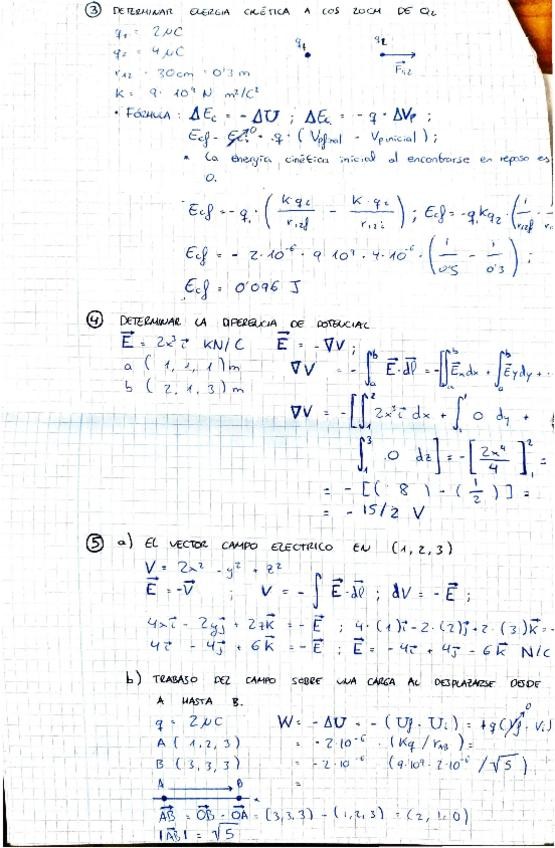 ③ DETERMINAR ENERGIA CINÉTICA A LOS 20CM DE Q2
q1 = 2μC
q2 = 4μC q1 q2
r12 = 30cm = 0'3 m F1,2
K = 9·10⁹ N m²/C²
• FÓRMULA: ΔEc = -ΔU ; ΔEc = -q·ΔVp ;
Ecf - Eci⁰ = -q·(Vpfinal - Vpinicial) ;
* la energía cinética inicial al encontrarse en reposo es
0.
Ecf = -q1·(K·q2/r12f - K·q2/r12i) ; Ecf = -q1 K q2·(1/r12f -
Ecf = -2·10⁻⁶·9·10⁹·4·10⁻⁶·(1/0'5 - 1/0'3) ;
Ecf = 0'096 J
④ DETERMINAR LA DIFERENCIA DE POTENCIAL
E = 2x³i KN/C E = -∇V ;
a (1, 1, 1) m ∇V = -∫ₐᵇ E·dl = -[∫ₐᵇ Ex dx + ∫ₐᵇ Ey dy +
b (2, 1, 3) m
∇V = -[∫₁² 2x³i dx + ∫₁¹ 0 dy +
∫₁³ 0 dz] = -[2x⁴/4]₁² =
= -[(8) - (1/2)] =
= -15/2 V
⑤ a) EL VECTOR CAMPO ELECTRICO EN (1,2,3)
V = 2x² - y² + z²
E = -V ; V = -∫E·dl ; dV = -E ;
4xi - 2yj + 2zk = -E ; 4·(1)i - 2·(2)j + 2·(3)k =
4i - 4j + 6k = -E ; E = -4i + 4j - 6k N/C
b) TRABAJO DEL CAMPO SOBRE UNA CARGA AL DESPLAZARSE DESDE
A HASTA B.
q = 2μC W = -ΔU = -(Uf - Ui) = +q(Vf⁰ - Vi)
A (1,2,3) = -2·10⁻⁶ (Kq/rAB) =
B (3,3,3) = -2·10⁻⁶ (9·10⁹·2·10⁻⁶/√5)
A B =
AB = OB - OA = (3,3,3) - (1,2,3) = (2,1,0)
|AB| = √5